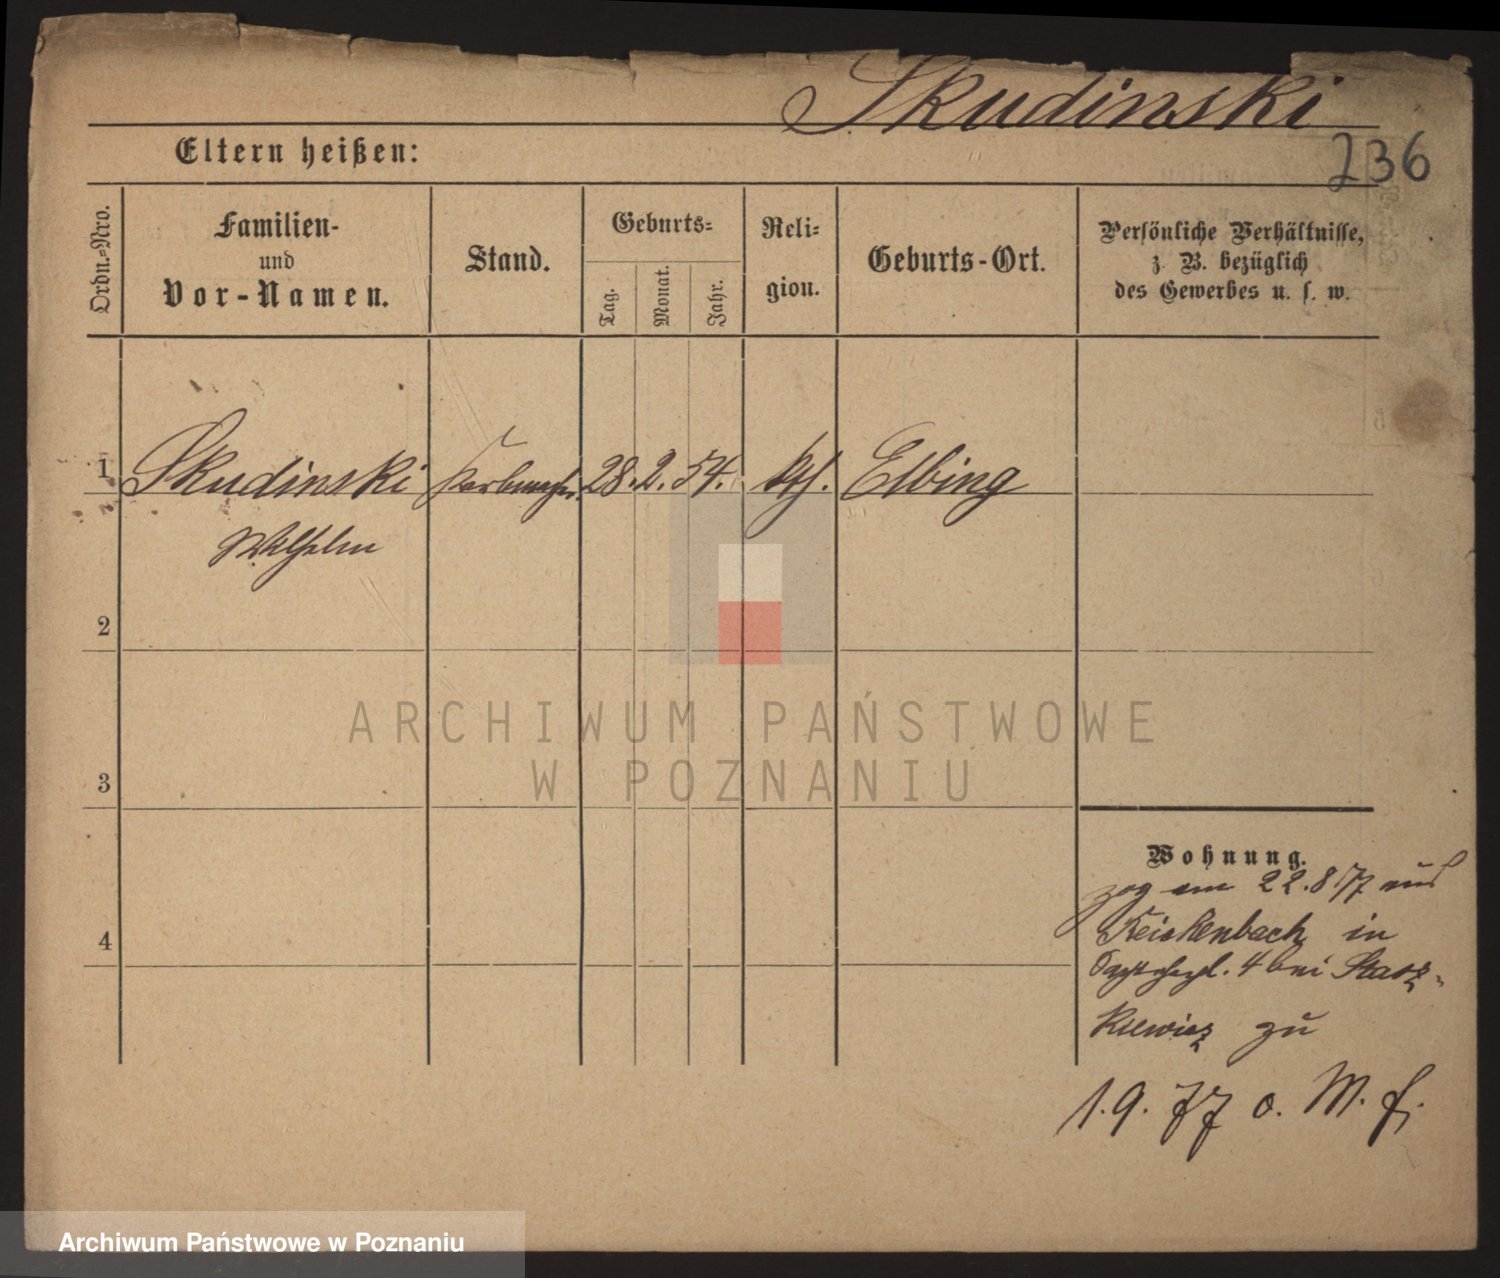 Skudinski
236
Eltern heißen:
Ordn.-Nro.
Familien-
und
Vor-Namen.
Stand.
Geburts-
Tag.
Monat.
Jahr.
Reli-
gion.
Geburts-Ort.
Persönliche Verhältnisse,
z. B. bezüglich
des Gewerbes u. s. w.
1 Skudinski 28. 2. 54. kth. Elbing
Wilhelm
2
3
4
Wohnung.
zog am 22.8 77 aus
Reichenbach in
4 bei
zu
1. 9. 77 o. M. f.
ARCHIWUM PAŃSTWOWE
W POZNANIU
Archiwum Państwowe w Poznaniu